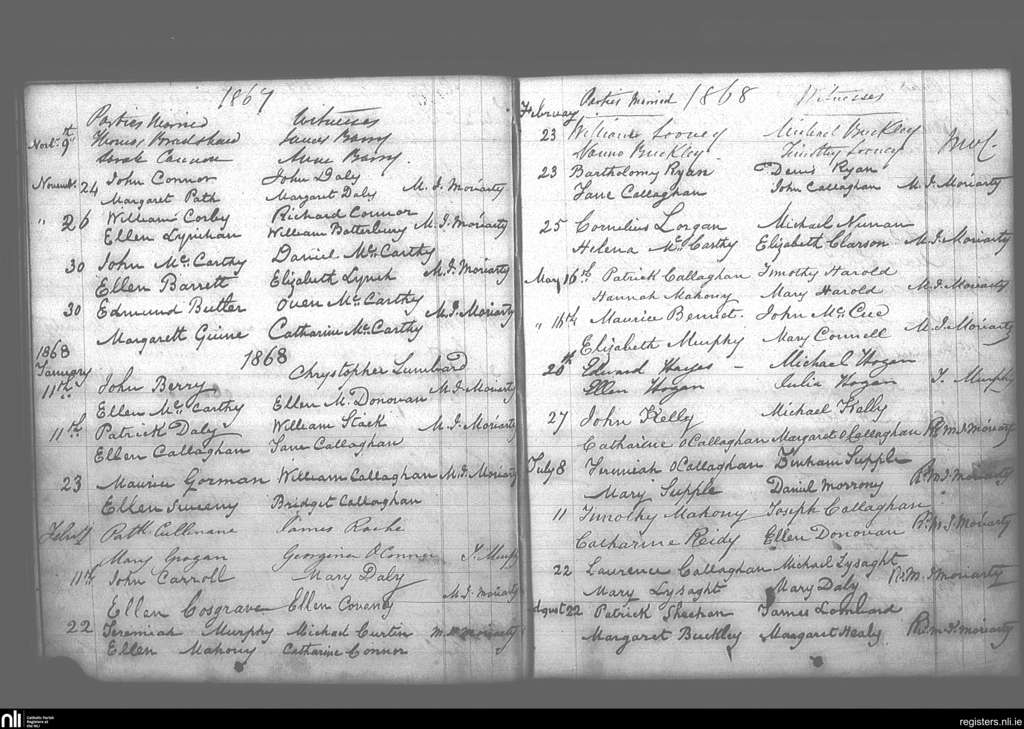 1867
Parties Married Witnesses
Novbr. 9th Thomas Bradshaw James Barry
Sarah Cannon Anne Barry.
Novemb. 24 John Connor John Daly
Margaret Path Margaret Daly M. J. Moriarty
" 26 William Corby Richard Connor
Ellen Lynihan William Batterbury M. J. Moriarty
30 John Mc.Carthy Daniel Mc.Carthy
Ellen Barrett Elizabeth Lynch M. J. Moriarty
30 Edmund Butler Owen Mc.Carthy
Margarett Guine Catharine Mc.Carthy M. J. Moriarty
1868 1868
January
11th John Berry Chrystopher Lumbard
Ellen Mc.Carthy Ellen Mc.Donovan M. J. Moriarty
11th Patrick Daly William Stack
Ellen Callaghan Jane Callaghan M. J. Moriarty
23 Maurice Gorman William Callaghan M. J. Moriarty
Ellen Sweeny Bridget Callaghan
Feb. Patk. Cullinane James Roche
Mary Grogan Georgina O'Connor T. Murphy
11th John Carroll Mary Daly
Ellen Cosgrave Ellen Coveney M. J. Moriarty
22 Jeremiah Murphy Michael Curtin M. J. Moriarty
Ellen Mahony Catharine Connor
February Parties Married 1868 Witnesses
23 William Looney Michael Buckley
Nanno Buckley Timothy Looney
23 Bartholomy Ryan Denis Ryan
Jane Callaghan John Callaghan M. J. Moriarty
25 Cornelius Lorgan Michael Nunan
Helena Mc.Carthy Elizabeth Clarson M. J. Moriarty
May 16th Patrick Callaghan Timothy Harold
Hannah Mahony Mary Harold M. J. Moriarty
" 16th Maurice Bennet. John McCee
Elizabeth Murphy Mary Connell M. J. Moriarty
20th Edward Hayes - Michael Hogan
Ellen Hogan Julia Hogan T. Murphy
27 John Kelly Michael Kelly
Catharine O'Callaghan Margaret O'Callaghan Rd. M. J. Moriarty
July 8 Jerimiah O'Callaghan Supple
Mary Supple Daniel Morrony Rd. M. J. Moriarty
11 Timothy Mahony Joseph Callaghan
Catharine Reidy Ellen Donovan Rd. M. J. Moriarty
22 Laurence Callaghan Michael Lysaght
Mary Lysaght Mary Daly Rd. M. J. Moriarty
August 22 Patrick Sheehan James Lombard
Margaret Buckley Margaret Healy Rd. M. J. Moriarty
nli Catholic Parish Registers at the NLI
registers.nli.ie